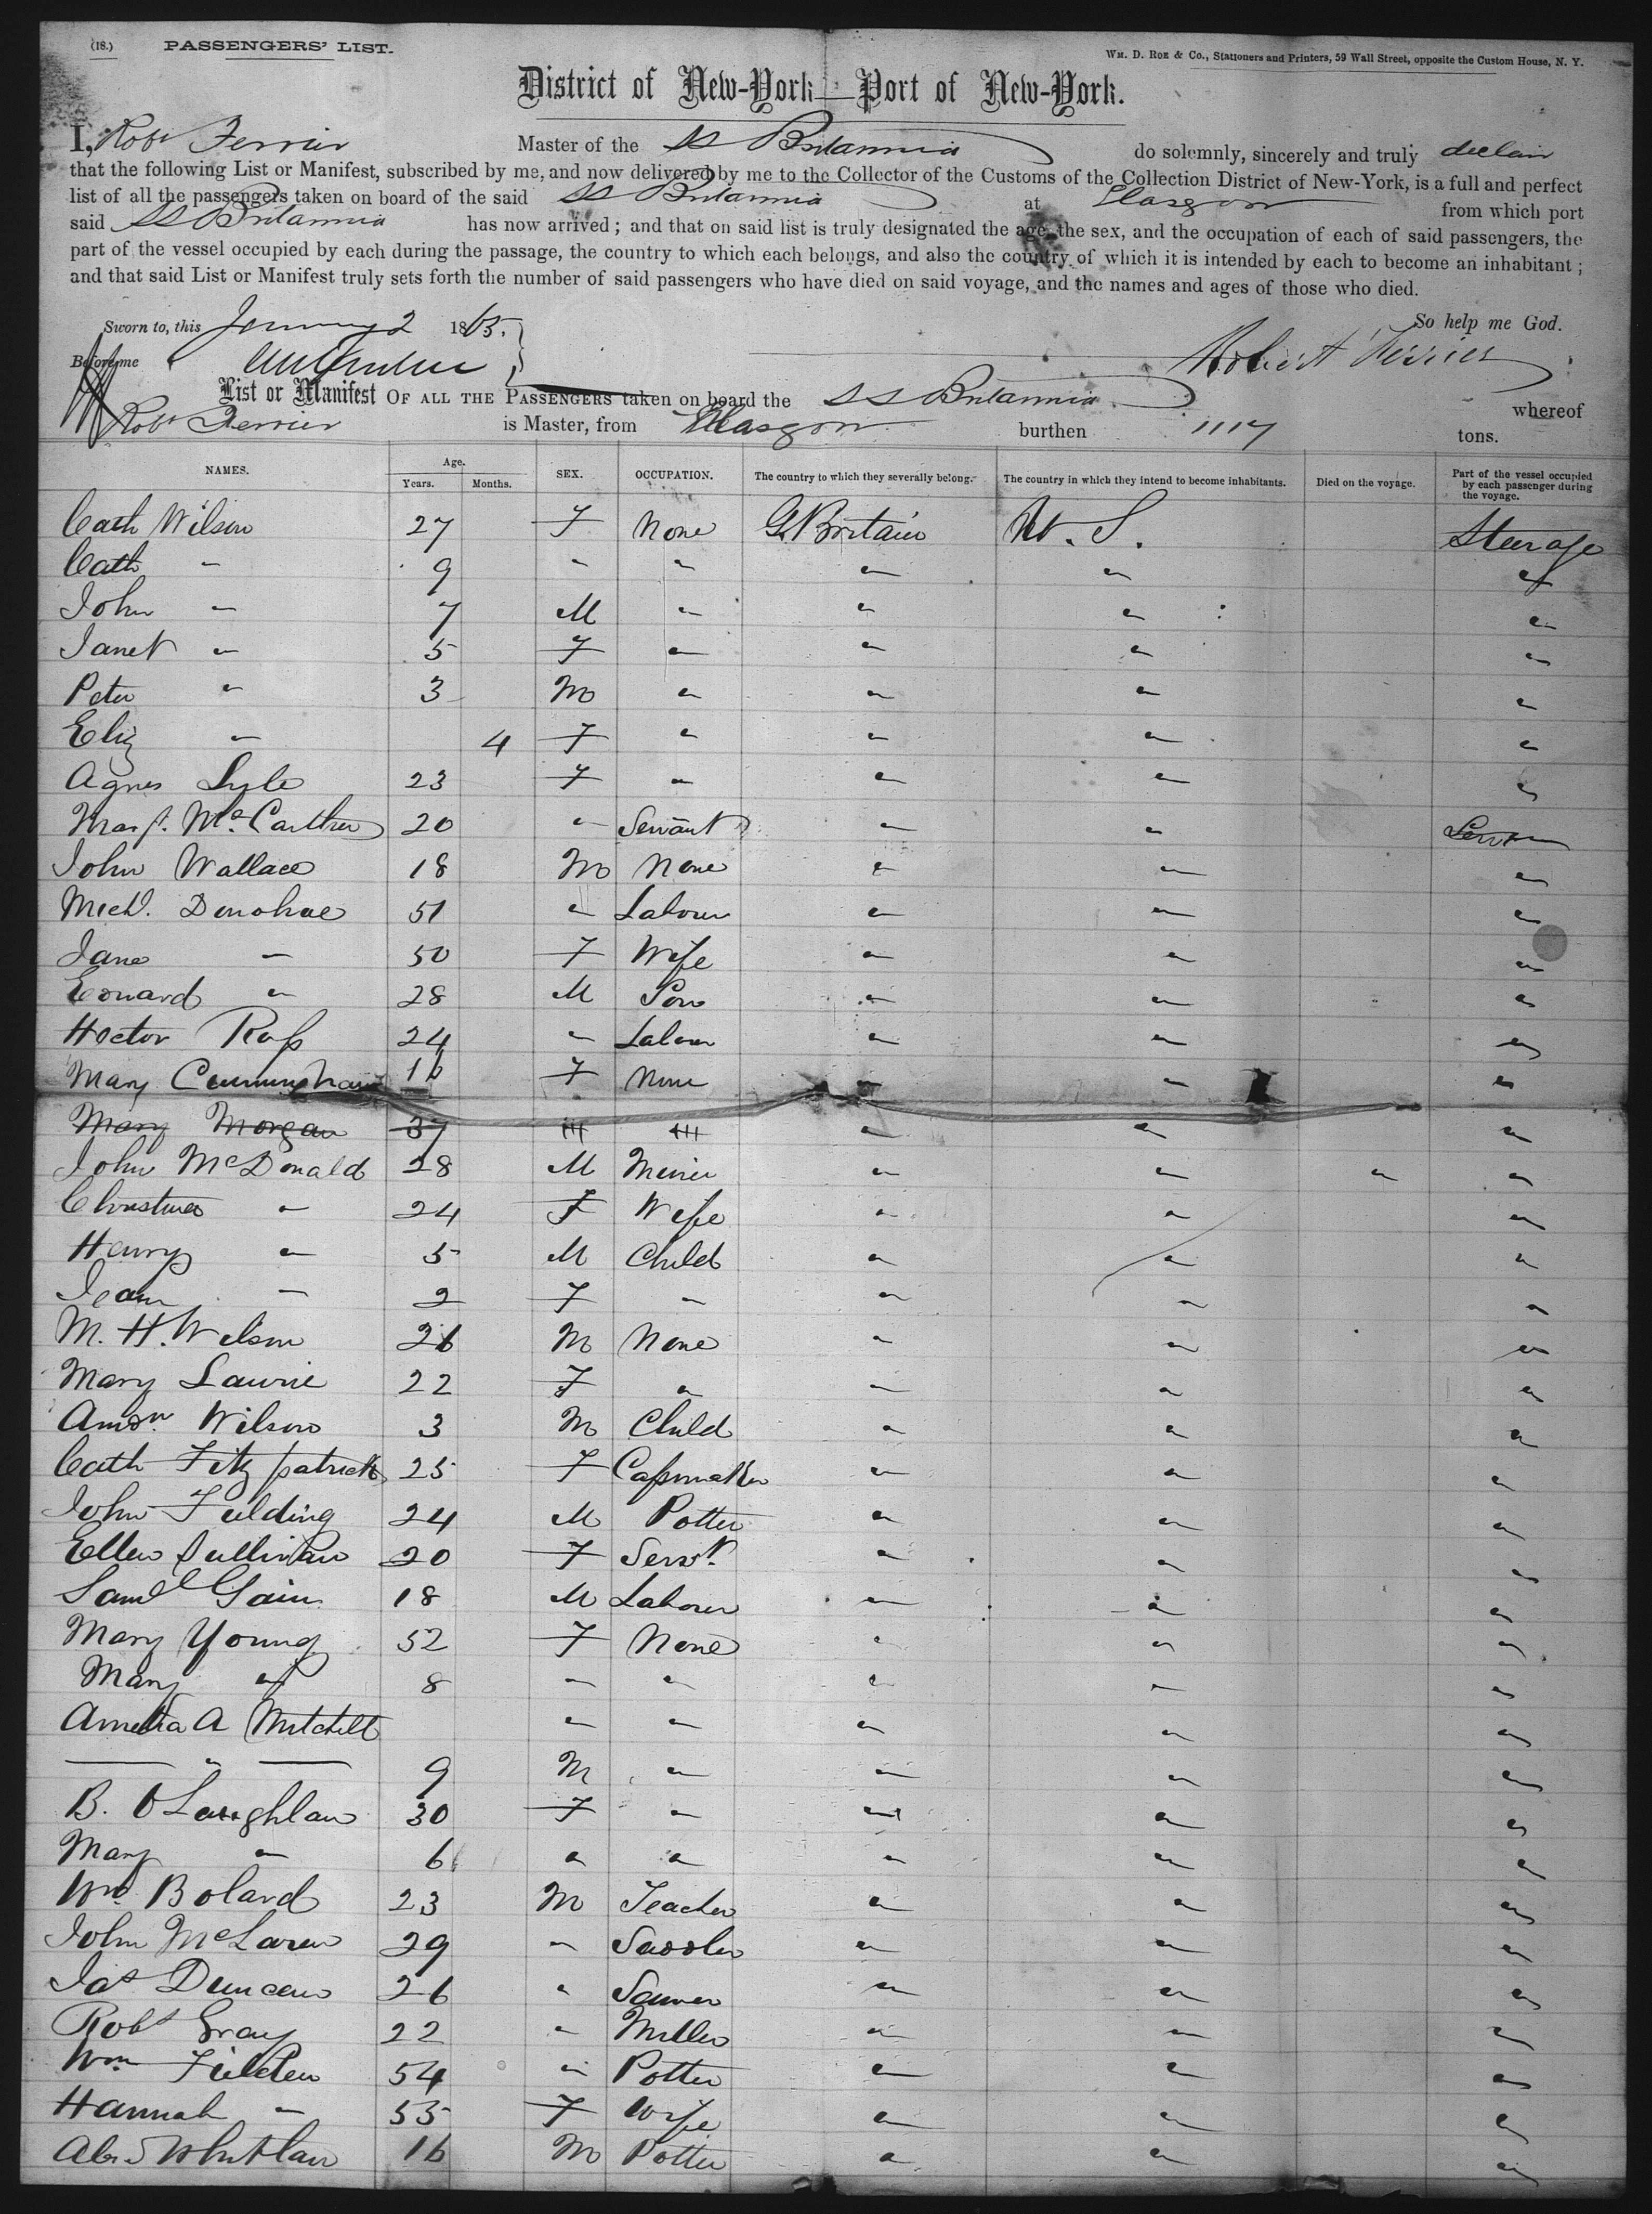 (18.) PASSENGERS' LIST. WM. D. ROE & Co., Stationers and Printers, 59 Wall Street, opposite the Custom House, N. Y.
District of New-York—Port of New-York.
I, Robt Ferrier Master of the SS Britannia do solemnly, sincerely and truly declair
that the following List or Manifest, subscribed by me, and now delivered by me to the Collector of the Customs of the Collection District of New-York, is a full and perfect
list of all the passengers taken on board of the said SS Britannia at Glasgow from which port
said SS Britannia has now arrived; and that on said list is truly designated the age, the sex, and the occupation of each of said passengers, the
part of the vessel occupied by each during the passage, the country to which each belongs, and also the country of which it is intended by each to become an inhabitant;
and that said List or Manifest truly sets forth the number of said passengers who have died on said voyage, and the names and ages of those who died.
Sworn to, this January 2 1865. So help me God.
Before me Robert Ferrier
List or Manifest OF ALL THE PASSENGERS taken on board the SS Britannia whereof
Robt Ferrier is Master, from Glasgow burthen 1117 tons.
NAMES. Age. SEX. OCCUPATION. The country to which they severally belong. The country in which they intend to become inhabitants. Died on the voyage. Part of the vessel occupied by each passenger during the voyage.
Years. Months.
Cath Wilson 27 F None G. Britain U. S. Steerage
Cath " 9 " " " " "
John " 7 M " " " "
Janet " 5 F " " " "
Peter " 3 M " " " "
Eliz " 4 F " " " "
Agnes Lyle 23 F " " " "
Margt. McCarther 20 " Servant " "
John Wallace 18 M None " " "
Michl. Donohoe 51 " Labour " " "
Jane " 50 F Wife " " "
Edward " 28 M Son " " "
Hector Ross 24 " Labour " " "
Mary Cunningham 16 F None " " "
Mary Morgan 37 " " " " "
John McDonald 28 M Miner " " " "
Christina " 24 F Wife " " "
Henry " 5 M Child " " "
Jean " 2 F " " " "
M. H. Wilson 26 M None " " "
Mary Laurie 22 F " " " "
Andw. Wilson 3 M Child " " "
Cath Fitzpatrick 25 F Capmaker " " "
John Fielding 24 M Potter " " "
Ellen Sullivan 20 F Servt. " " "
Saml Gain 18 M Labourer " " "
Mary Young 52 F None " " "
Mary " 8 " " " " "
Amelia A Mitchell " " " " "
— " — 9 M " " " "
B. O'Laughlan 30 F " " " "
Mary " 6 " " " " "
Wm Boland 23 M Teacher " " "
John McLaren 29 " Saddler " " "
Jas Duncan 26 " " " "
Robt Gray 22 " Miller " " "
Wm Fielden 54 " Potter " " "
Hannah " 55 F Wife " " "
Alex Whitlaw 16 M Potter " " "